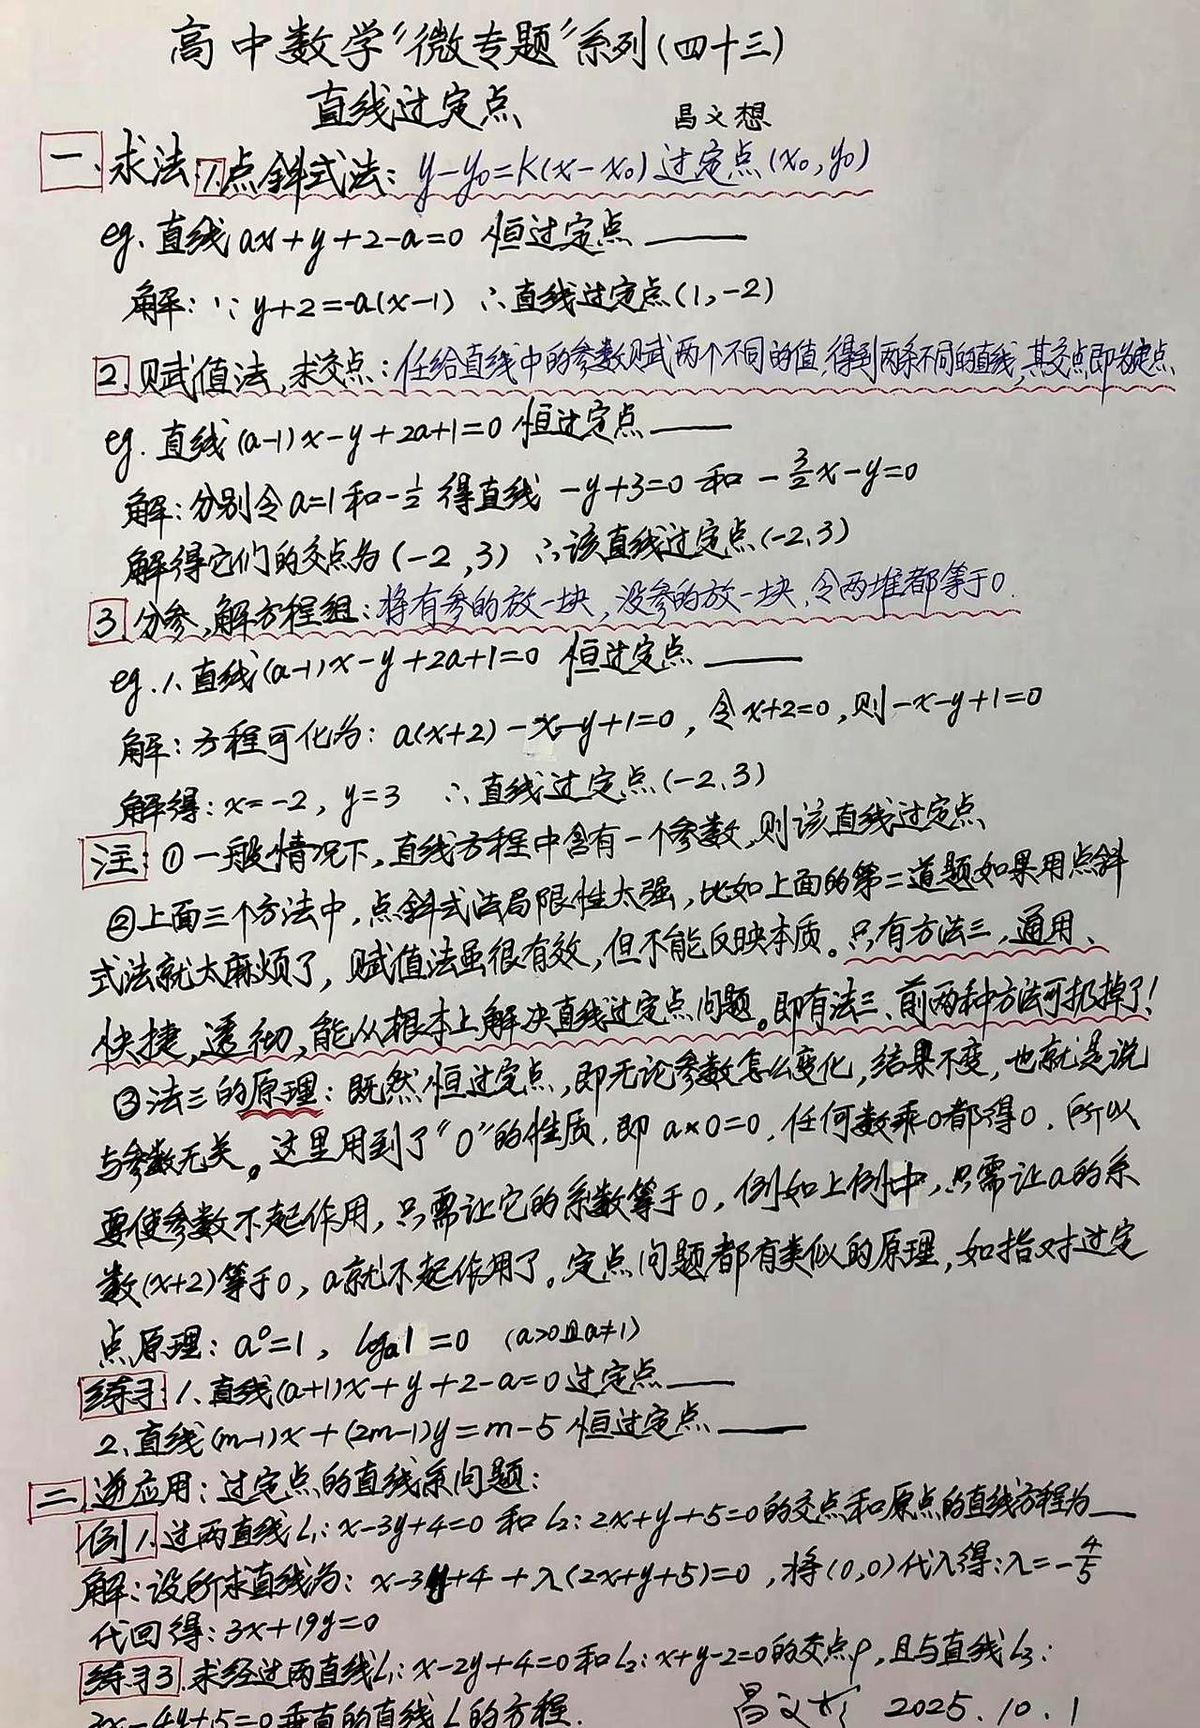 高中数学“微专题”系列(四十三)
直线过定点 昌文想
一、求法 1.点斜式法: y-y₀=k(x-x₀) 过定点(x₀,y₀)
eg. 直线 ax+y+2-a=0 恒过定点 ____
解: ∵ y+2=-a(x-1) ∴直线过定点(1,-2)
2.赋值法,求交点:任给直线中的参数赋两个不同的值,得到两条不同的直线,其交点即为定点
eg. 直线(a-1)x-y+2a+1=0 恒过定点____
解:分别令a=1和-1/2 得直线 -y+3=0 和 -3/2x-y=0
解得它们的交点为(-2,3) ∴该直线过定点(-2,3)
3.分参,解方程组:将有参的放一块,没参的放一块,令两堆都等于0.
eg.1.直线(a-1)x-y+2a+1=0 恒过定点____
解:方程可化为: a(x+2)-x-y+1=0, 令x+2=0,则-x-y+1=0
解得:x=-2, y=3 ∴直线过定点(-2,3)
注:①一般情况下,直线方程中含有一个参数,则该直线过定点
②上面三个方法中,点斜式法局限性太强,比如上面的第二道题如果用点斜
式法就太麻烦了,赋值法虽很有效,但不能反映本质。只有方法三,通用、
快捷,透彻,能从根本上解决直线过定点问题。即有法三、前两种方法可扔掉了!
③法三的原理:既然恒过定点,即无论参数怎么变化,结果不变,也就是说
与参数无关。这里用到了“0”的性质,即 a×0=0,任何数乘0都得0.所以
要使参数不起作用,只需让它的系数等于0,例如上例中,只需让a的系
数(x+2)等于0,a就不起作用了。定点问题都有类似的原理,如指对过定
点原理: a⁰=1, logₐ1=0 (a>0且a≠1)
练习:1、直线(a+1)x+y+2-a=0过定点____
2、直线(m-1)x+(2m-1)y=m-5 恒过定点____
二、逆应用:过定点的直线系问题:
例1.过两直线L₁:x-3y+4=0 和 L₂:2x+y+5=0的交点和原点的直线方程为____
解:设所求直线为: x-3y+4+λ(2x+y+5)=0,将(0,0)代入得:λ=-4/5
代回得:3x+19y=0
练习3.求经过两直线L₁:x-2y+4=0和L₂:x+y-2=0的交点P,且与直线L₃:
3x-4y+5=0垂直的直线L的方程. 昌文 2025.10.1